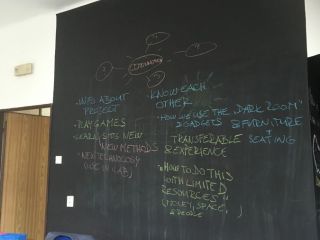 EXPECTATION
- INFO ABOUT
PROJECT
- PLAY GAMES
- LEARN STHS NEW
- NEW METHODS
- NEW TECHNOLOGY
(USE IN LAB)
- KNOW EACH
OTHER
- HOW WE USE THE „DARK ROOM"
GADGETS & FURNITURE
+ SEATING
TRANSFERABLE
EXPERIENCE
- HOW TO DO THIS
WITH LIMITED
RESOURCES"
(MONEY, SPACE,
PEOPLE